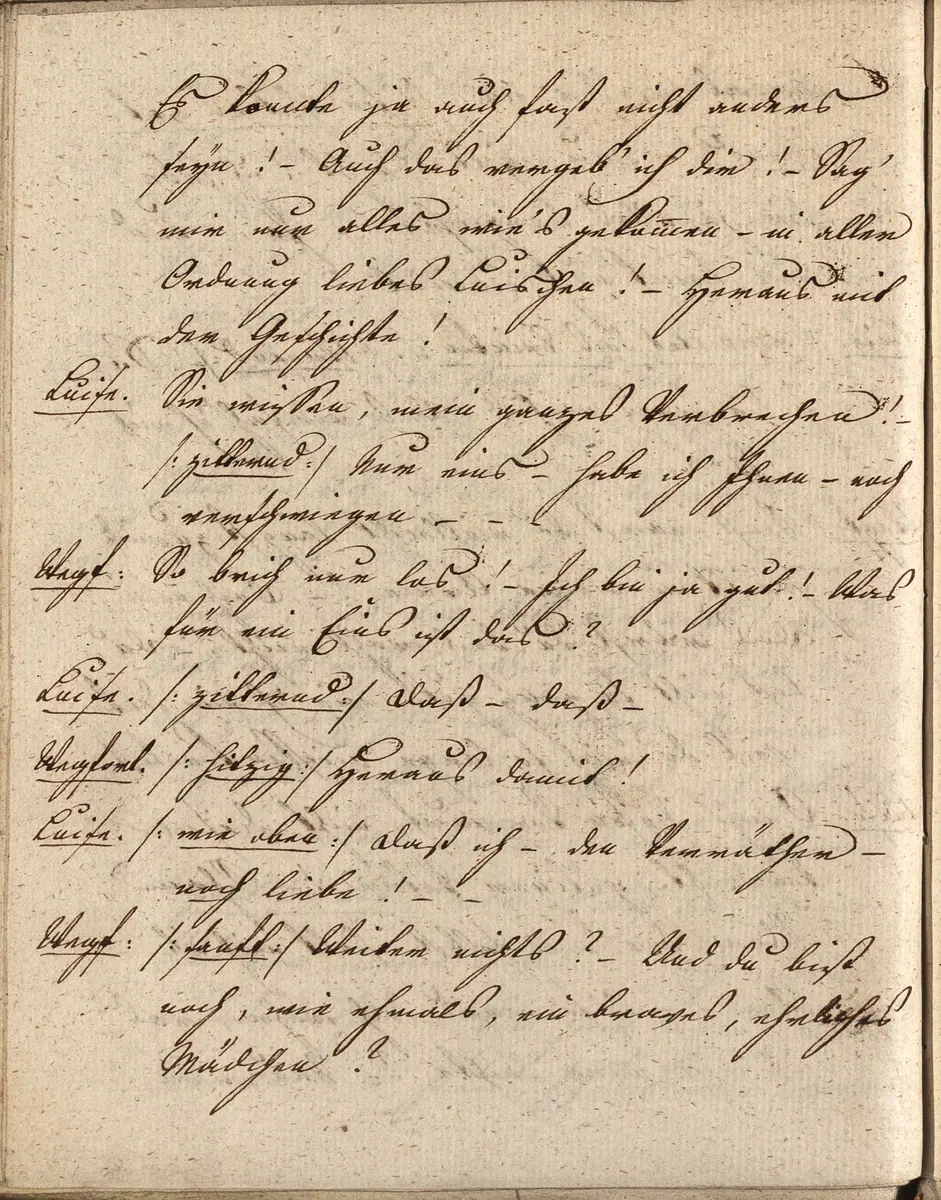 Es konnte ja auch fast nicht anders
seyn! – Auch das vergeb' ich dir! – Sag'
mir nur alles wie's gekom̄en – in aller
Ordnung liebes Luischen! – Heraus mit
der Geschichte!
Luise. Sie wissen, mein ganzes Verbrechen! –
/: zitternd :/ Nur eins – habe ich Ihnen – noch
verschwiegen – – –
Wegf: So brich nur los! – Ich bin ja gut! – Was
für ein Eins ist das?
Luise. /: zitternd :/ Daß – daß –
Wegfort. /: hitzig :/ Heraus damit!
Luise. /: wie oben :/ Daß ich – den Verräther –
noch liebe! – –
Wegf: /: sanft :/ Weiter nichts? – Und du bist
noch, wie ehmals, ein braves, ehrliches
Mädchen?